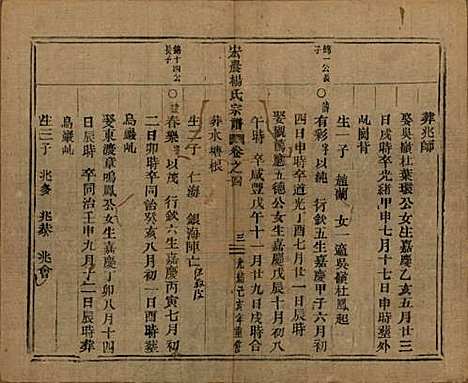 葬兆師
娶吳嶺杜葉環公女生嘉慶乙亥五月廿三
日戌時卒光緒甲申七月十七日申時塟外
屺岡背
生一子 趙蘭 女 適吳嶺杜鳳起
錦一公長子
有彩 以純 行欽五生嘉慶甲子六月初
四日申時卒道光丁酉七月廿一日辰時
娶劉隖應五德公女生嘉慶戊辰十月初八
午時 卒咸豐戊午十一月廿九日戌時合
葬水塘根
生二子 仁海 銀海陣亡
宏農楊氏宗譜 卷之四 三 光緒己亥年重修
錦十四公長子
春樂 以茂 行欽六生嘉慶丙寅七月初
二日卯時卒同治癸亥八月初一日時塟
烏巖屺
娶東渡章鳴鳳公女生嘉慶丁卯八月十四
日辰時 卒同治壬申九月 日辰時 葬
烏巖屺
生三子 兆多 兆棻 兆會